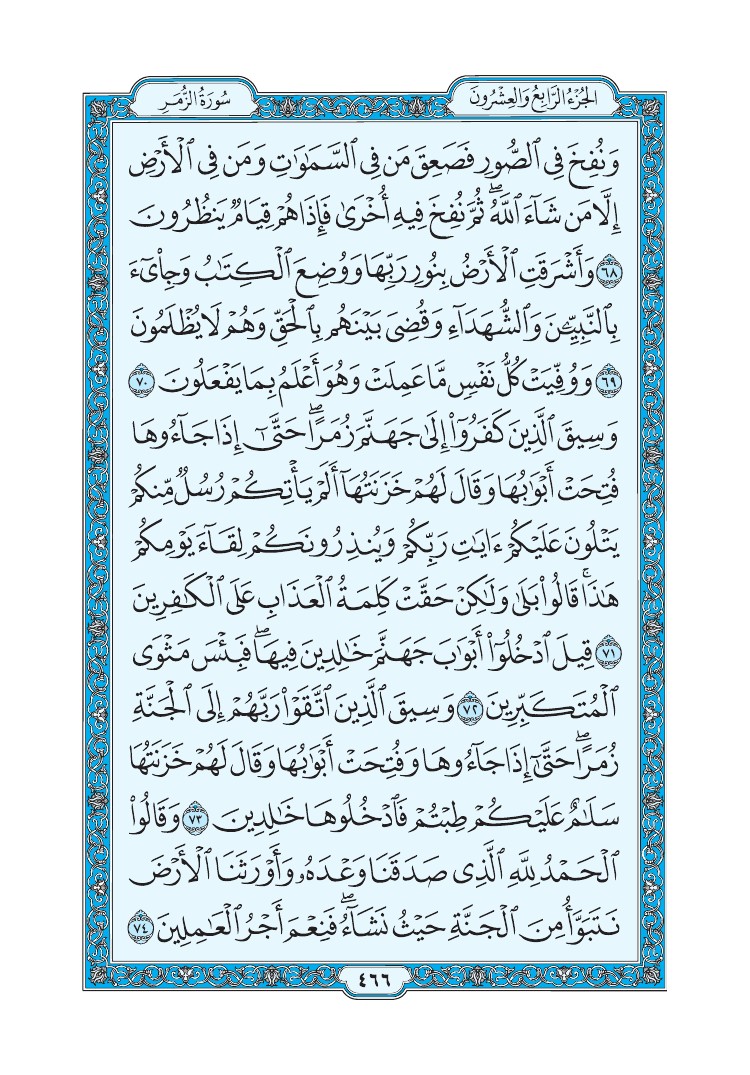 الجُزْءُ الرَّابِعُ وَالعِشْرُونَ
سُورَةُ الزُّمَرِ
وَنُفِخَ فِي ٱلصُّورِ فَصَعِقَ مَن فِي ٱلسَّمَٰوَٰتِ وَمَن فِي ٱلْأَرْضِ
إِلَّا مَن شَآءَ ٱللَّهُۖ ثُمَّ نُفِخَ فِيهِ أُخْرَىٰ فَإِذَا هُمْ قِيَامٌ يَنظُرُونَ
٦٨ وَأَشْرَقَتِ ٱلْأَرْضُ بِنُورِ رَبِّهَا وَوُضِعَ ٱلْكِتَٰبُ وَجِا۟يٓءَ
بِٱلنَّبِيِّۦنَ وَٱلشُّهَدَآءِ وَقُضِىَ بَيْنَهُم بِٱلْحَقِّ وَهُمْ لَا يُظْلَمُونَ
٦٩ وَوُفِّيَتْ كُلُّ نَفْسٍ مَّا عَمِلَتْ وَهُوَ أَعْلَمُ بِمَا يَفْعَلُونَ ٧٠
وَسِيقَ ٱلَّذِينَ كَفَرُوٓا۟ إِلَىٰ جَهَنَّمَ زُمَرًاۖ حَتَّىٰٓ إِذَا جَآءُوهَا
فُتِحَتْ أَبْوَٰبُهَا وَقَالَ لَهُمْ خَزَنَتُهَآ أَلَمْ يَأْتِكُمْ رُسُلٌ مِّنكُمْ
يَتْلُونَ عَلَيْكُمْ ءَايَٰتِ رَبِّكُمْ وَيُنذِرُونَكُمْ لِقَآءَ يَوْمِكُمْ
هَٰذَاۚ قَالُوا۟ بَلَىٰ وَلَٰكِنْ حَقَّتْ كَلِمَةُ ٱلْعَذَابِ عَلَى ٱلْكَٰفِرِينَ
٧١ قِيلَ ٱدْخُلُوٓا۟ أَبْوَٰبَ جَهَنَّمَ خَٰلِدِينَ فِيهَاۖ فَبِئْسَ مَثْوَى
ٱلْمُتَكَبِّرِينَ ٧٢ وَسِيقَ ٱلَّذِينَ ٱتَّقَوْا۟ رَبَّهُمْ إِلَى ٱلْجَنَّةِ
زُمَرًاۖ حَتَّىٰٓ إِذَا جَآءُوهَا وَفُتِحَتْ أَبْوَٰبُهَا وَقَالَ لَهُمْ خَزَنَتُهَا
سَلَٰمٌ عَلَيْكُمْ طِبْتُمْ فَٱدْخُلُوهَا خَٰلِدِينَ ٧٣ وَقَالُوا۟
ٱلْحَمْدُ لِلَّهِ ٱلَّذِى صَدَقَنَا وَعْدَهُۥ وَأَوْرَثَنَا ٱلْأَرْضَ
نَتَبَوَّأُ مِنَ ٱلْجَنَّةِ حَيْثُ نَشَآءُۖ فَنِعْمَ أَجْرُ ٱلْعَٰمِلِينَ ٧٤
٤٦٦